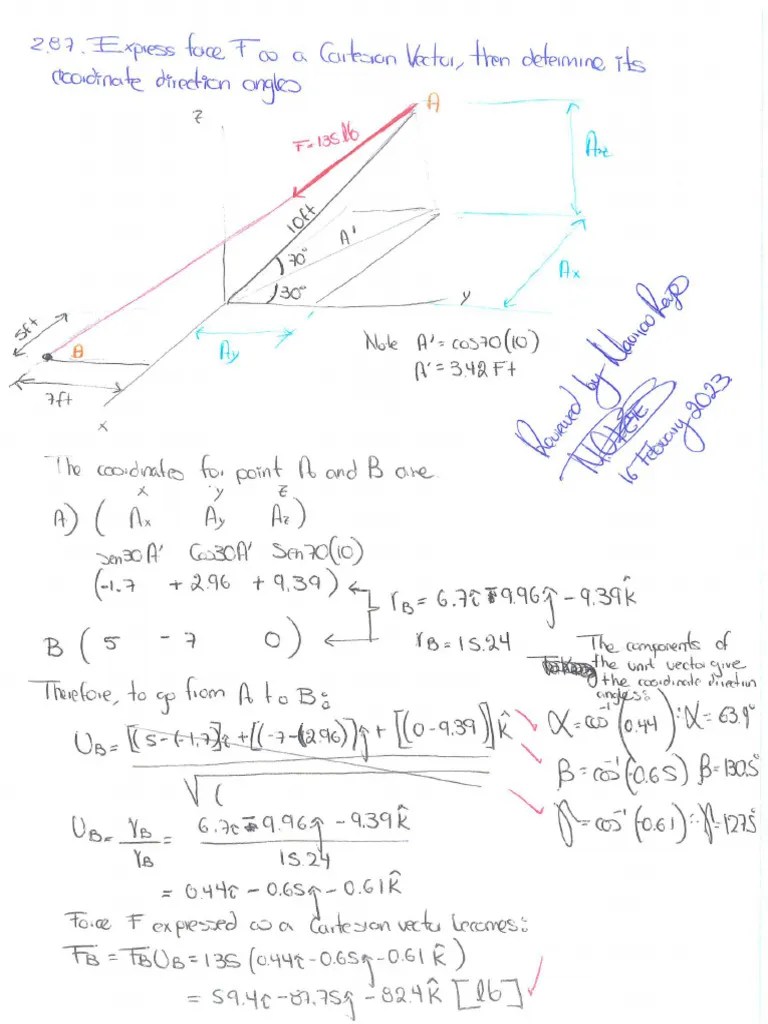 2.87. Express force F as a Cartesian Vector, then determine its
coordinate direction angles
z
A
F=135 lb
Az
10ft
A'
70°
Ax
30°
y
5ft
B
Ay
7ft
x
Note A' = cos70(10)
A' = 3.42 Ft
Reviewed by Mauricio
16 February 2023
The coordinates for point A and B are
x y z
A) ( Ax Ay Az )
sen30A' Cos30A' Sen70(10)
(-1.7 +2.96 +9.39)
B ( 5 -7 0 )
rB = 6.7i - 9.96j - 9.39k̂
rB = 15.24
Therefore, to go from A to B:
UB = [(5-(-1.7)]i + [(-7-(2.96)]j + [(0-9.39)]k̂
√(
The components of
the unit vector give
the coordinate direction
angles:
α = cos⁻¹(0.44) ∴ α = 63.9°
β = cos⁻¹(-0.65) β = 130.5°
γ = cos⁻¹(-0.61) ∴ γ = 127.5°
UB = rB/rB = 6.7i - 9.96j - 9.39k̂
15.24
= 0.44i - 0.65j - 0.61k̂
Force F expressed as a Cartesian vector becomes:
FB = FBUB = 135 (0.44i - 0.65j - 0.61k̂)
= 59.4i - 87.75j - 82.4k̂ [lb]